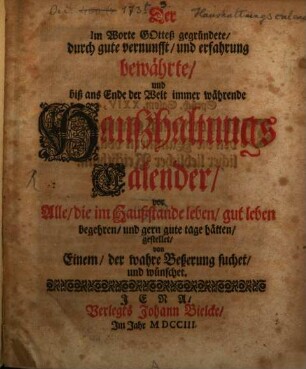 Der
Im Worte GOttes gegründete/
durch gute vernunfft/ und erfahrung
bewährte/
und
biß ans Ende der Welt immer währende
Haußhaltungs
Calender/
vor
Alle/ die im Haußstande leben/ gut leben
begehren/ und gern gute tage hätten/
gestellet/
von
Einem/ der wahre Beßerung suchet/
und wünschet.
JENA/
Verlegts Johann Bielcke/
Im Jahr MDCCIII.